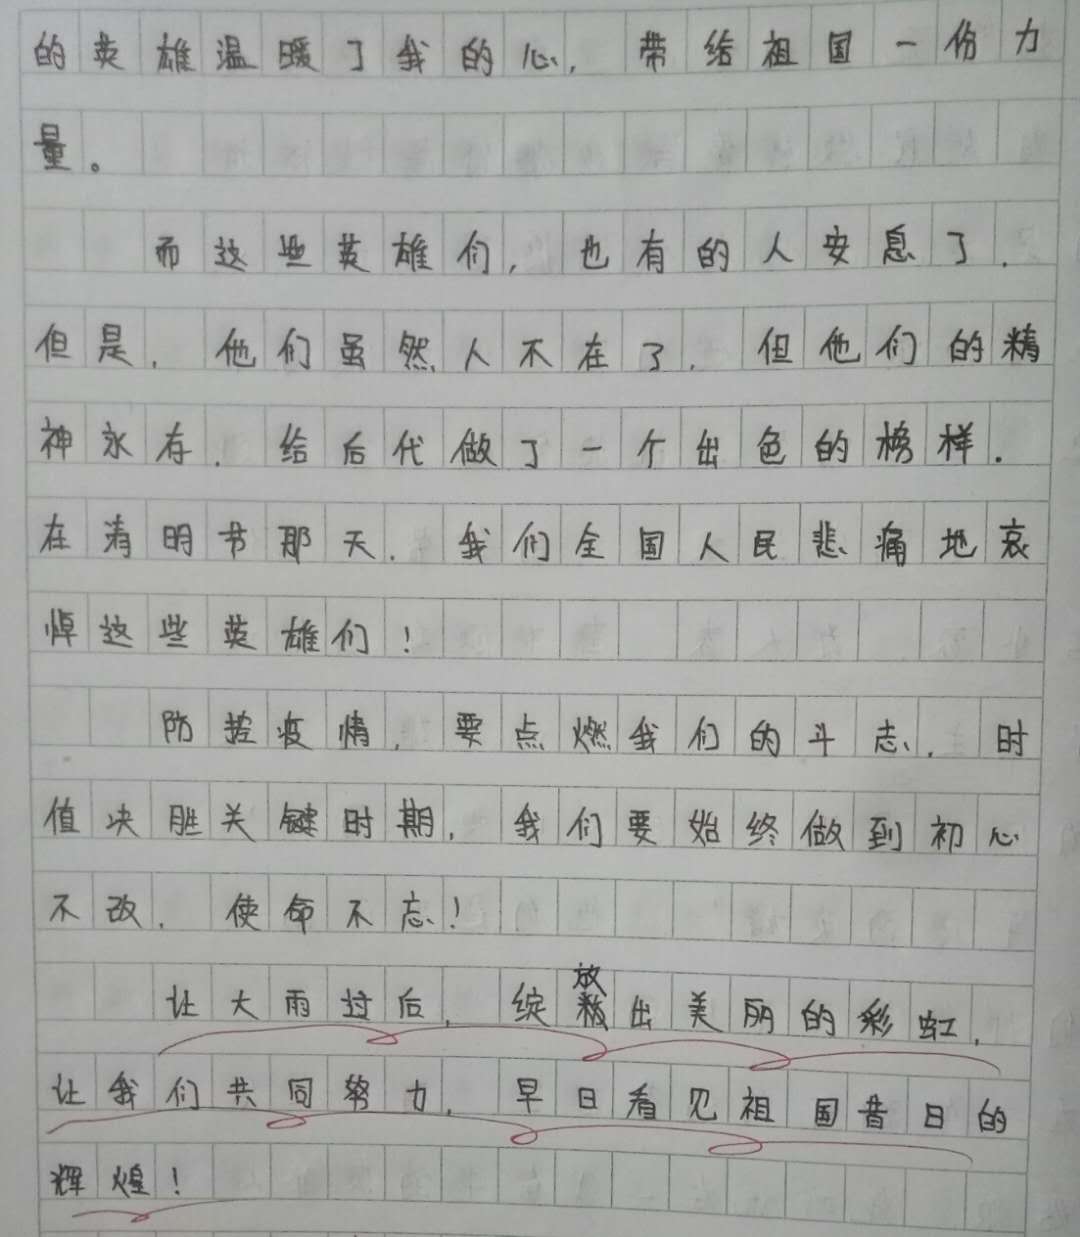 的英雄温暖了我的心，带给祖国一份力
量。
而这些英雄们，也有的人安息了．
但是，他们虽然人不在了，但他们的精
神永存．给后代做了一个出色的榜样．
在清明节那天，我们全国人民悲痛地哀
悼这些英雄们！
防控疫情，要点燃我们的斗志，时
值决胜关键时期，我们要始终做到初心
不改，使命不忘！
让大雨过后，绽放出美丽的彩虹，
让我们共同努力，早日看见祖国昔日的
辉煌！